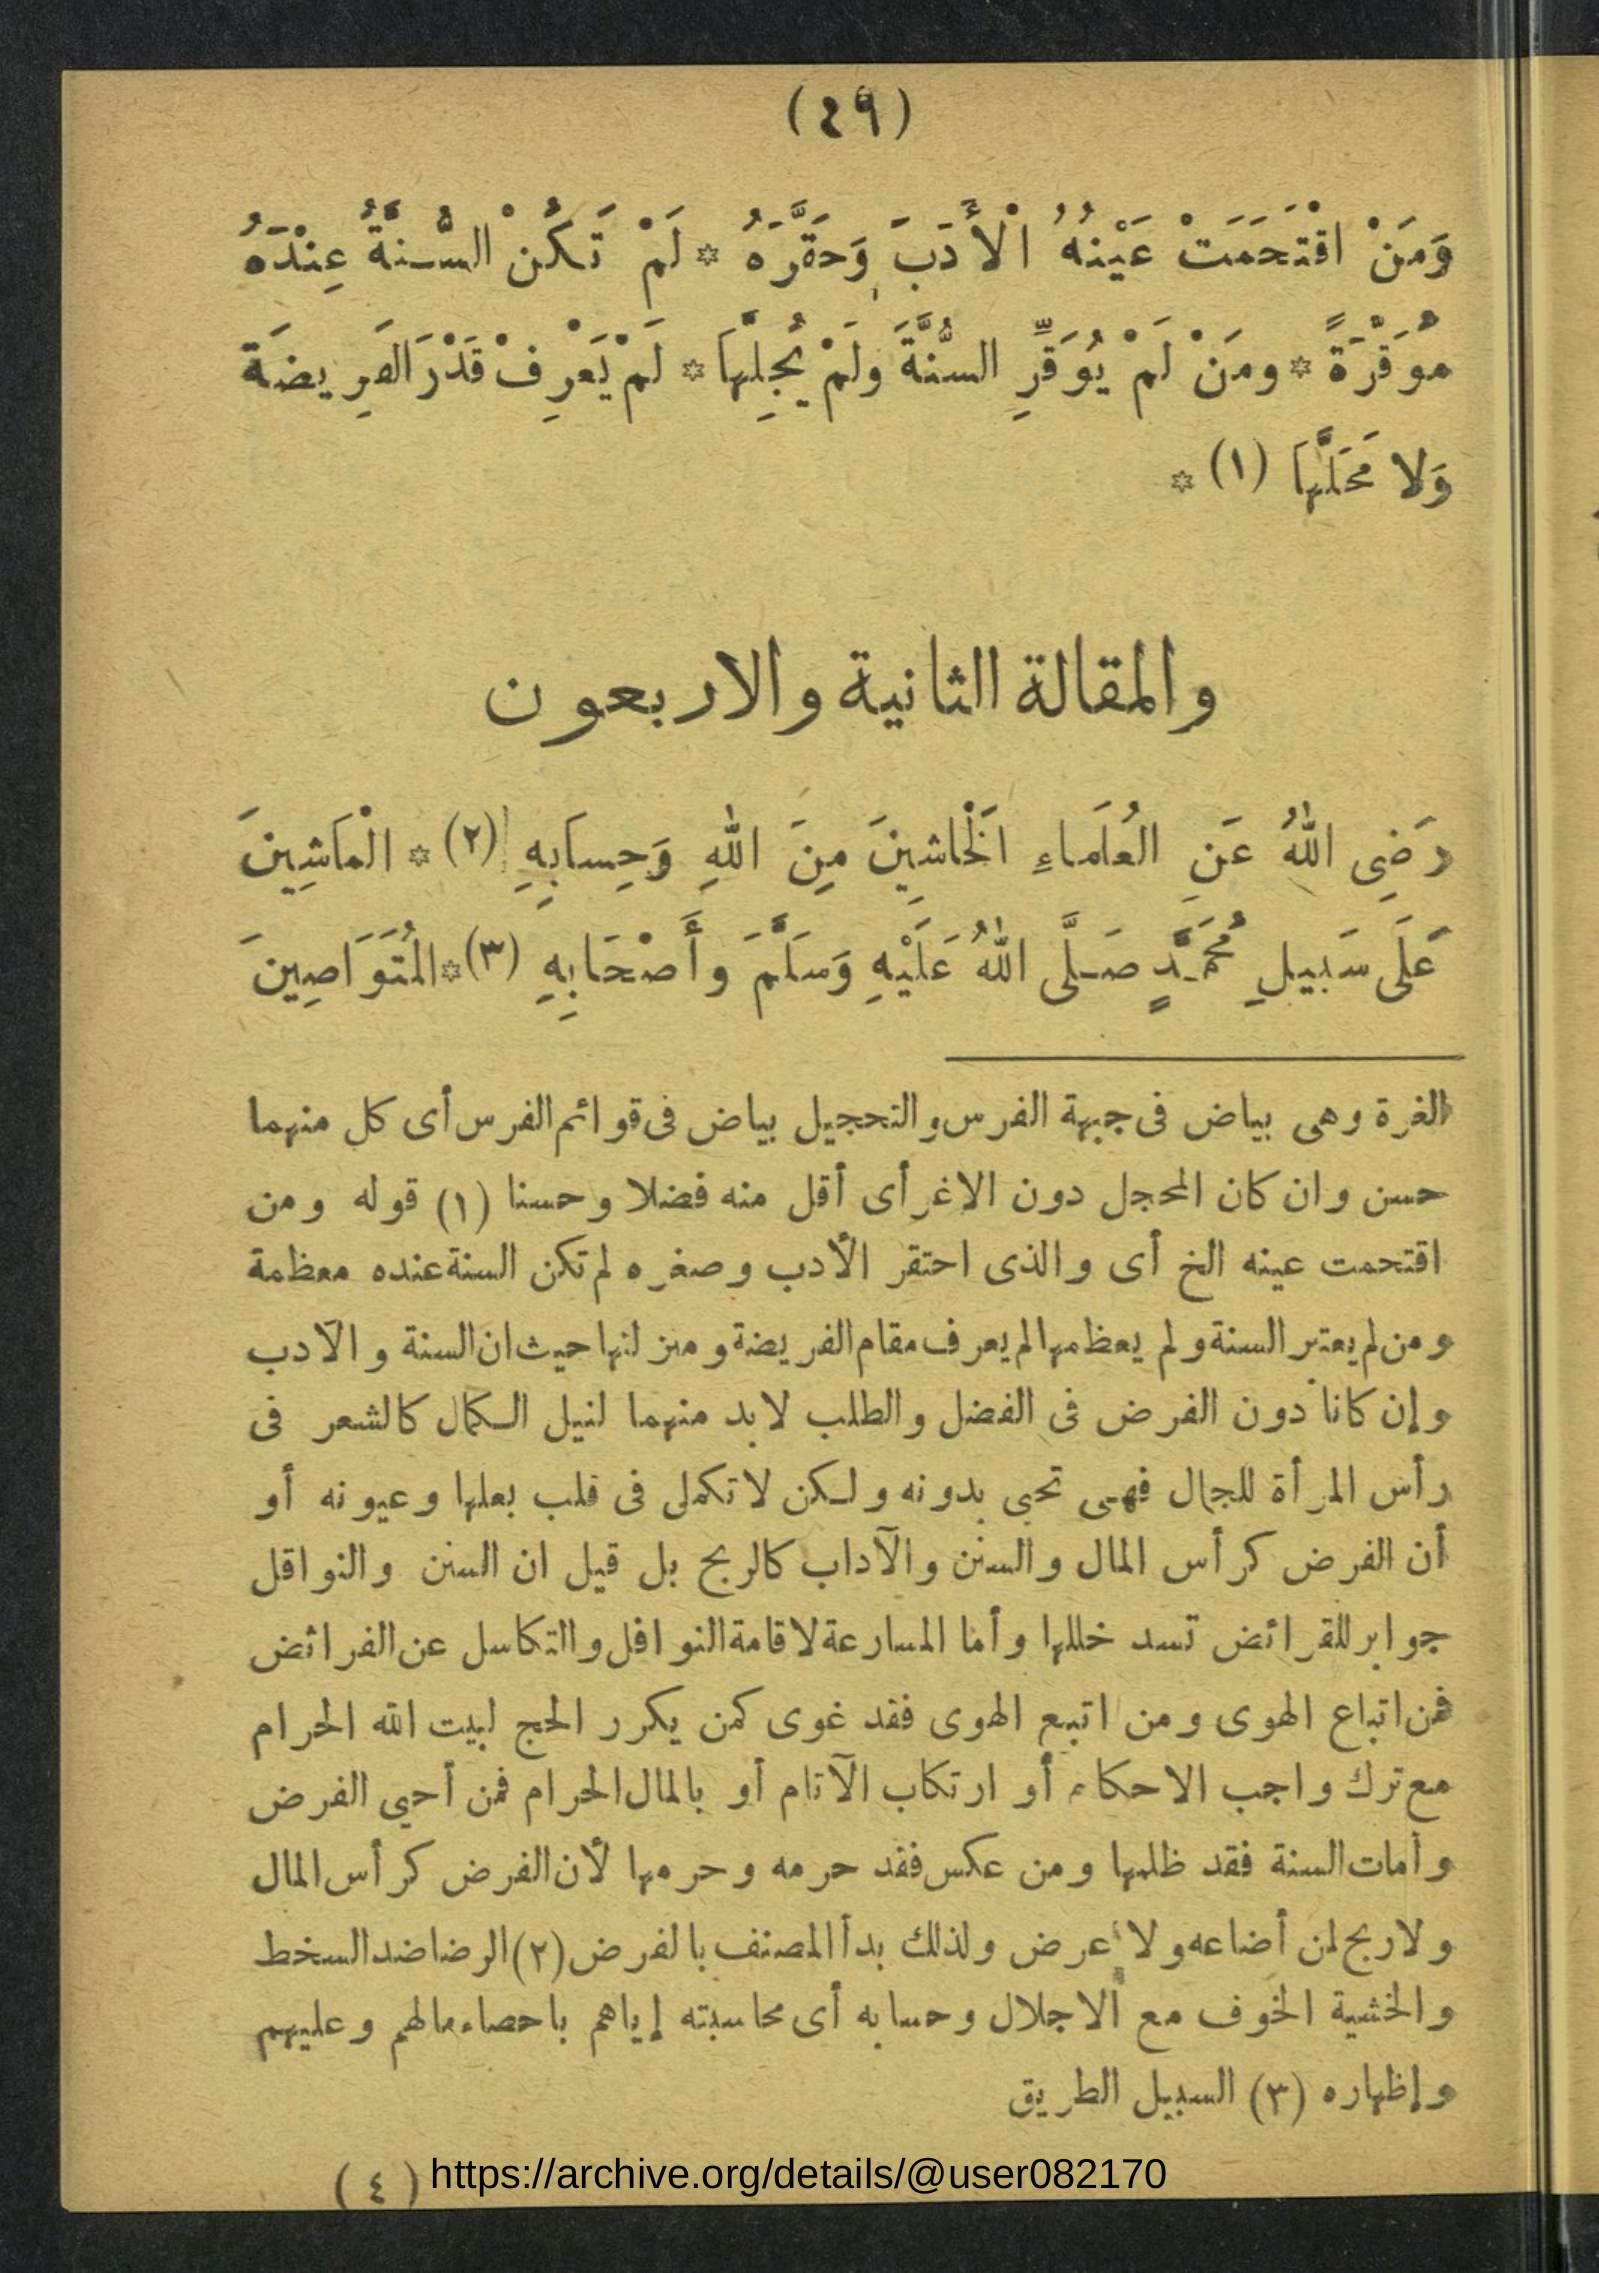 (٤٩)
وَمَنْ اقْتَحَمَتْ عَيْنُهُ الْأَدَبَ وَحَقَّرَهُ * لَمْ تَكُنْ السُّنَّةُ عِنْدَهُ
مُوَقَّرَةً * ومَنْ لَمْ يُوَقِّرِ السُّنَّةَ ولَمْ يُجِلَّهَا * لَمْ يَعْرِفْ قَدْرَ الفَرِيضَةَ
وَلا مَحَلَّهَا (١) *
والمقالة الثانية والاربعون
رَضِى اللهُ عَنِ العُلَمَاءِ الْخَاشِينَ مِنَ اللهِ وَحِسابِهِ (٢) * الْمَاشِينَ
عَلَى سَبِيلِ مُحَمَّدٍ صَلَّى اللهُ عَلَيْهِ وَسَلَّمَ وأَصْحَابِهِ (٣) * المُتَوَاصِينَ
الغرة وهى بياض فى جبهة الفرس والتحجيل بياض فى قوائم الفرس أى كل منهما
حسن وان كان المحجل دون الاغر أى أقل منه فضلا وحسنا (١) قوله ومن
اقتحمت عينه الخ أى والذى احتقر الأدب وصغره لم تكن السنة عنده معظمة
ومن لم يعتبر السنة ولم يعظمها لم يعرف مقام الفريضة ومنزلتها حيث ان السنة والآدب
وإن كانا دون الفرض فى الفضل والطلب لابد منهما لنيل الكمال كالشعر فى
رأس المرأة للجمال فهى تحيى بدونه ولكن لا تكمل فى قلب بعلها وعيونه أو
أن الفرض كرأس المال والسنن والآداب كالربح بل قيل ان السنن والنوافل
جوابر للفرائض تسد خللها وأما المسارعة لاقامة النوافل والتكاسل عن الفرائض
فمن اتباع الهوى ومن اتبع الهوى فقد غوى كمن يكرر الحج لبيت الله الحرام
مع ترك واجب الاحكام أو ارتكاب الآثام أو بالمال الحرام فمن أحيى الفرض
وأمات السنة فقد ظلمها ومن عكس فقد حرمه وحرمها لأن الفرض كرأس المال
ولا ربح لمن أضاعه ولا عرض ولذلك بدأ المصنف بالفرض (٢) الرضا ضد السخط
والخشية الخوف مع الاجلال وحسابه أى محاسبته إياهم باحصاء مالهم وعليهم
وإظهاره (٣) السبيل الطريق
(٤) https://archive.org/details/@user082170